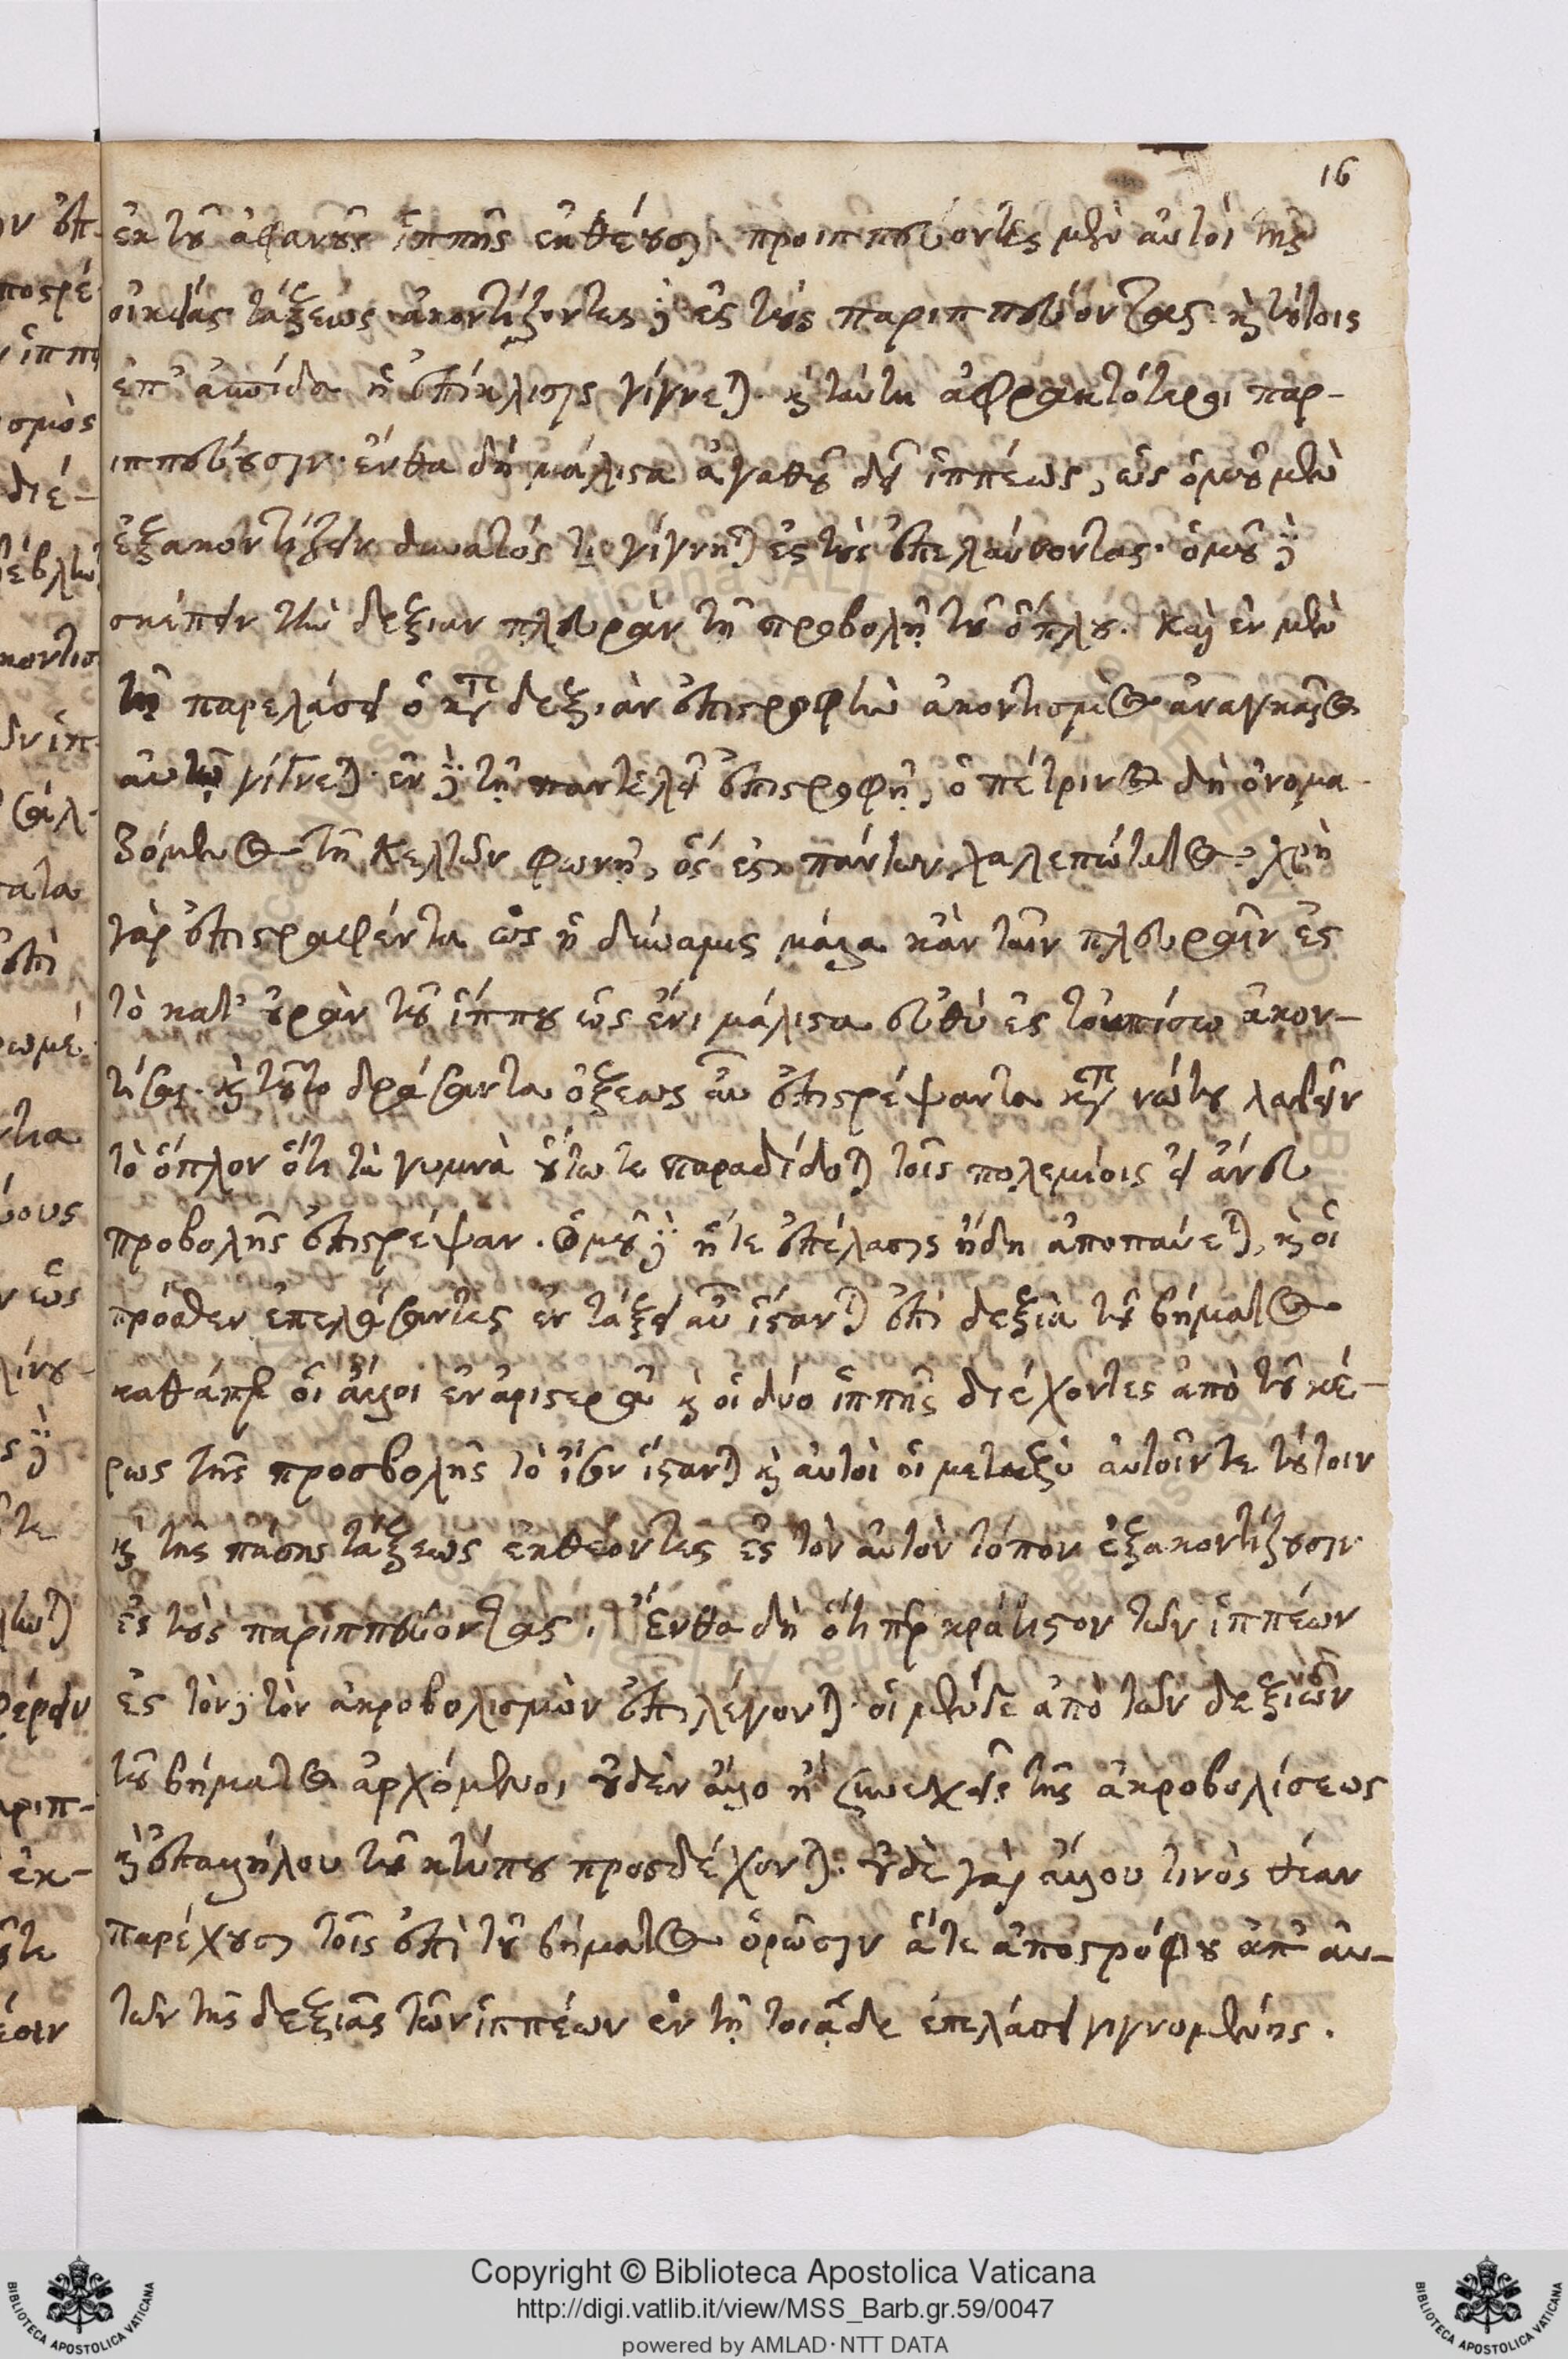 16
ἐκ τοῦ ἀφανοῦς ἱππῆς ἐκθέουσι. προιππεύοντες μὲν αὐτοὶ τῆς
οἰκείας τάξεως ἀκοντίζοντες δὲ ἐς τοὺς παριππεύοντας. καὶ τούτοις
ἐπ' ἀσπίδα ἡ ἐπίκλισις γίγνεται. καὶ ταύτῃ ἀφρακτότεροι παρ-
ιππεύουσιν. ἔνθα δὴ μάλιστα ἀγαθοῦ δεῖ ἱππέως, ὡς ὁμοῦ μὲν
ἐξακοντίζειν δυνατός τε γίγνηται ἐς τοὺς ἐπελαύνοντας. ὁμοῦ δὲ
σκέπειν τὴν δεξιὰν πλευρὰν τῇ προβολῇ τοῦ ὅπλου. Καὶ ἐν μὲν
τῇ παρελάσει ὁ κατὰ δεξιὰν ἐπιστροφὴν ἀκοντισμὸς ἀναγκαῖος
αὐτῷ γίγνεται. ἐν δὲ τῇ παντελεῖ ἐπιστροφῇ, ὁ πέτρινος δὴ ὀνομα
ζόμενος τῇ Κελτῶν φωνῇ, ὅς ἐστι πάντων χαλεπώτατος. χρὴ
γὰρ ἐπιστραφέντα ὡς ἡ δύναμις μάλα κἂν ταῖν πλευραῖν ἐς
τὸ κατ' οὐρὰν τοῦ ἵππου ὡς ἔνι μάλιστα εὐθὺ ἐς τοὐπίσω ἀκον-
τίσαι. καὶ τοῦτο δράσαντα ὀξέως αὖ ἐπιστρέψαντα κατὰ νώτου λαβεῖν
τὸ ὅπλον ὅτι τὰ γυμνὰ οὕτω τε παραδίδοται τοῖς πολεμίοις εἰ ἄνευ
προβολῆς ἐπιστρέψαν. Ὁμοῦ δὲ ἥτε ἐπέλασις ἤδη ἀποπαύεται, καὶ οἱ
πρόσθεν ἐπελάσαντες ἐν τάξει αὖ ἵστανται ἐπὶ δεξιὰ τοῦ βήματος
καθάπερ οἱ ἄλλοι ἐν ἀριστερᾷ καὶ οἱ δύο ἱππῆς διέχοντες ἀπὸ τοῦ κέ-
ρως τῆς προσβολῆς τὸ ἴσον ἵστανται καὶ αὐτοὶ οἱ μεταξὺ αὐτοῖν τε τούτοιν
καὶ τῆς πάσης τάξεως ἐκθέοντες ἐς τὸν αὐτὸν τόπον ἐξακοντίζουσιν
ἐς τοὺς παριππεύοντας. Ἔνθα δὴ ὅτι περ κράτιστον τῶν ἱππέων
ἐς τόνδε τὸν ἀκροβολισμὸν ἐπιλέγονται. οἱ μέν τε ἀπὸ τῶν δεξιῶν
τοῦ βήματος ἀρχόμενοι οὐδὲν ἄλλο ἢ συνεχεῖς τῆς ἀκροβολίσεως
καὶ ἐπαλλήλου τοῦ κτύπου προσδέχονται. οὐδὲ γὰρ ἄλλου τινὸς θέαν
παρέχουσι τοῖς ἐπὶ τοῦ βήματος ὁρῶσιν ἅτε ἀποστρόφου ἀπ' αὐ-
τῶν τῆς δεξιᾶς τῶν ἱππέων ἐν τῇ τοιᾷδε ἐπελάσει γιγνομένης.
Copyright © Biblioteca Apostolica Vaticana
http://digi.vatlib.it/view/MSS_Barb.gr.59/0047
powered by AMLAD·NTT DATA
BIBLIOTECA APOSTOLICA VATICANA
BIBLIOTECA APOSTOLICA VATICANA